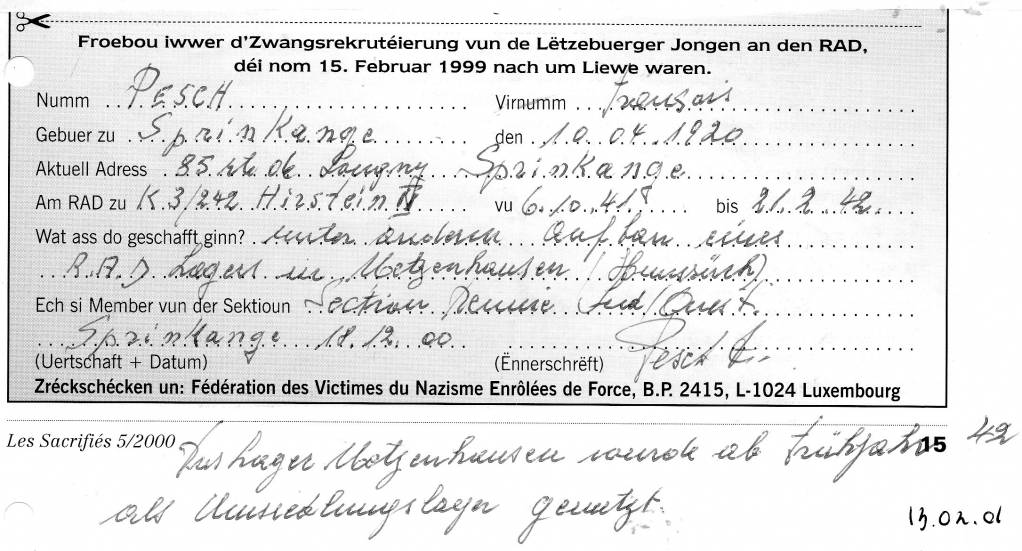 Froebou iwwer d'Zwangsrekrutéierung vun de Lëtzebuerger Jongen an den RAD,
déi nom 15. Februar 1999 nach um Liewe waren.
Numm PESCH Virnumm François
Gebuer zu Sprinkange den 10.04.1920
Aktuell Adress 85 rte de Longwy Sprinkange
Am RAD zu K 3/242 Hirstein vu 6.10.41 bis 21.2.42.
Wat ass do geschafft ginn? unter anderem Aufbau eines
R.A.D Lagers in Metzenhausen (Hunsrück)
Ech si Member vun der Sektioun Section Réunie Sud/Ouest.
Sprinkange 18.12.00 Pesch F.
(Uertschaft + Datum) (Ënnerschrëft)
Zréckschécken un: Fédération des Victimes du Nazisme Enrôlées de Force, B.P. 2415, L-1024 Luxembourg
Les Sacrifiés 5/2000 15
Das Lager Metzenhausen wurde ab Frühjahr 42
als Umsiedlungslager genutzt.
13.02.01